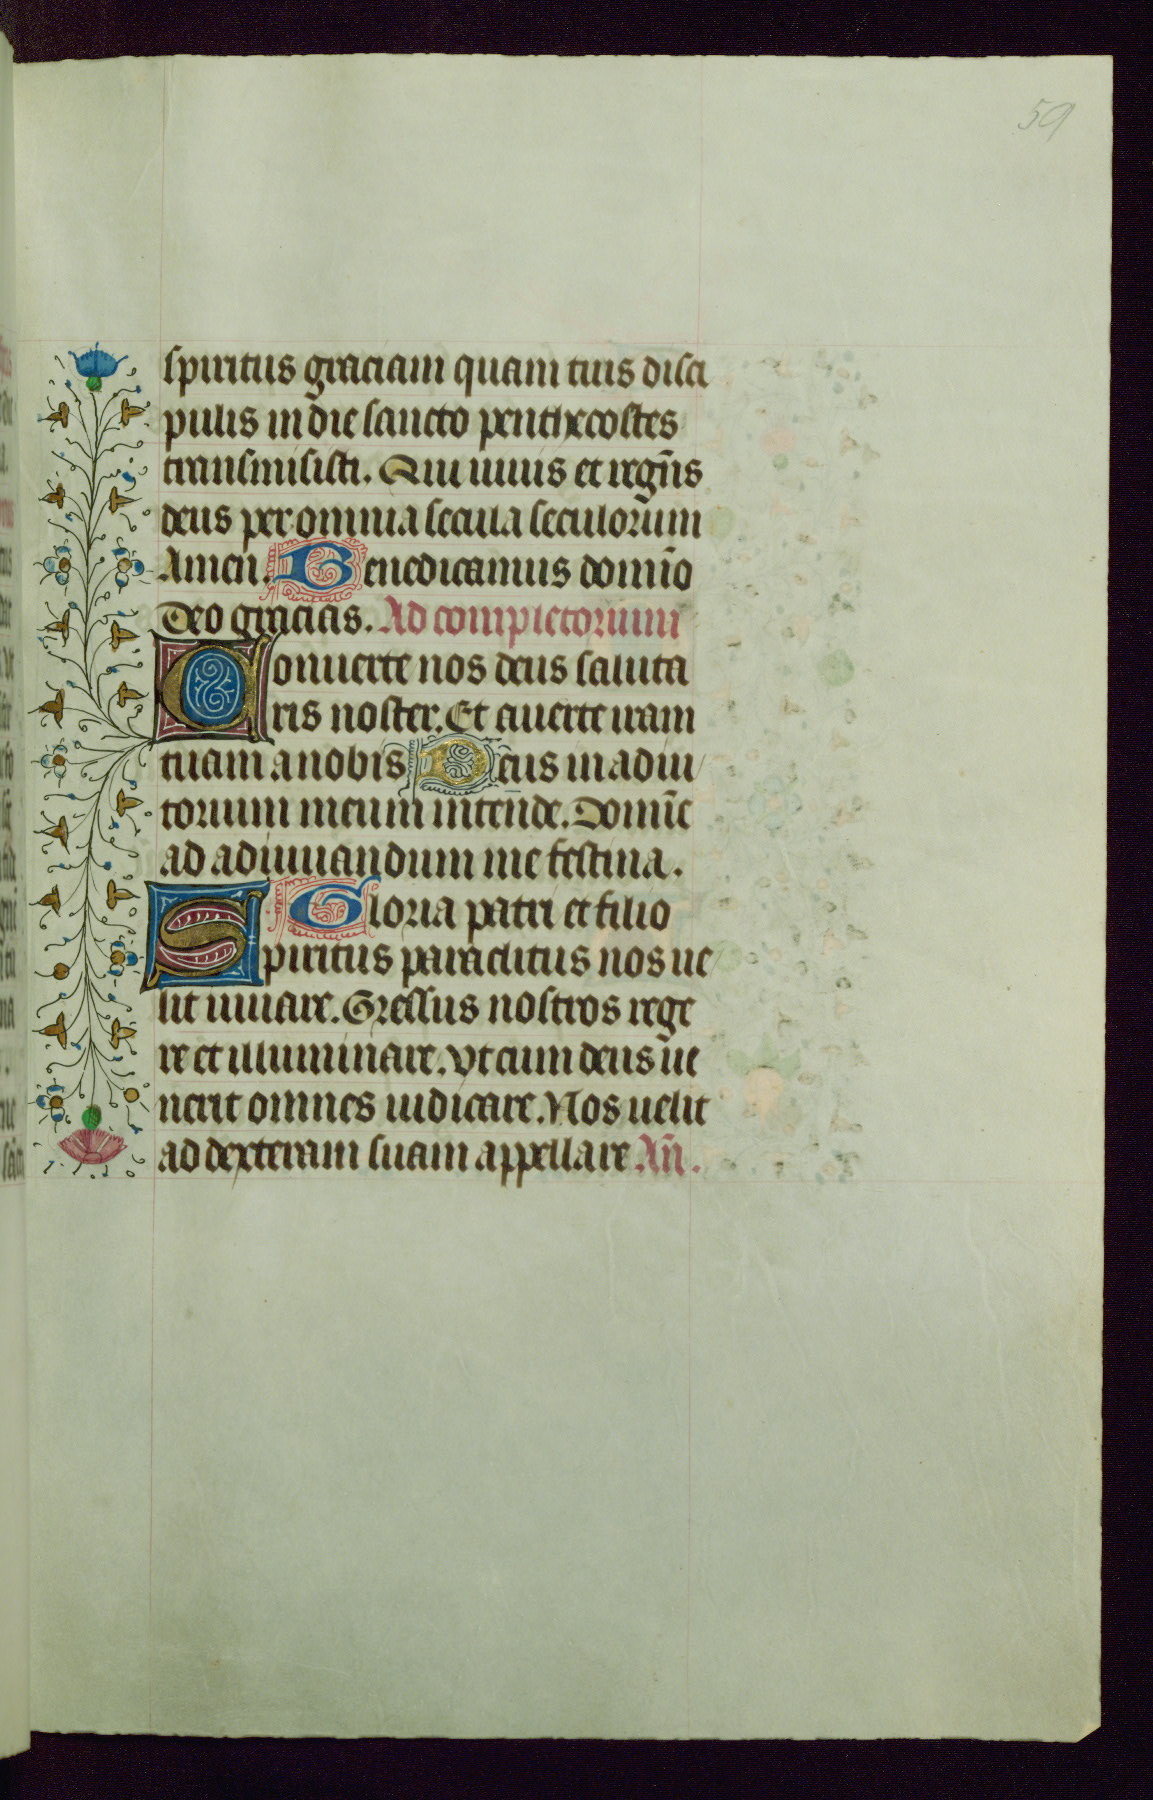 59
spiritus graciam quam tuis disci
pulis in die sancto penthecostes
transmisisti. Qui uiuis et regn̄s
deus per omnia secula seculorum
Amen. Benedicamus domīo
Deo gracias. Ad completorium
Conuerte nos deus saluta
ris noster. Et auerte iram
tuam a nobis Deus in adiu
torium meum intende. Domīe
ad adiuuandum me festina.
Gloria patri et filio
Spiritus paraclitus nos ue
lit iuuare. Gressus nostros rege
re et illuminare. Vt cum deus ue
nerit omnes iudicare. Nos uelit
ad dexteram suam appellare Añ.